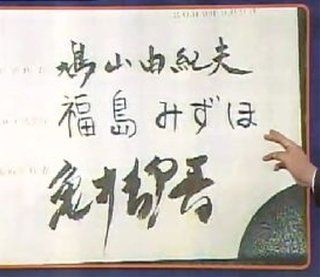 鳩山由紀夫
福島みずほ
亀井静香